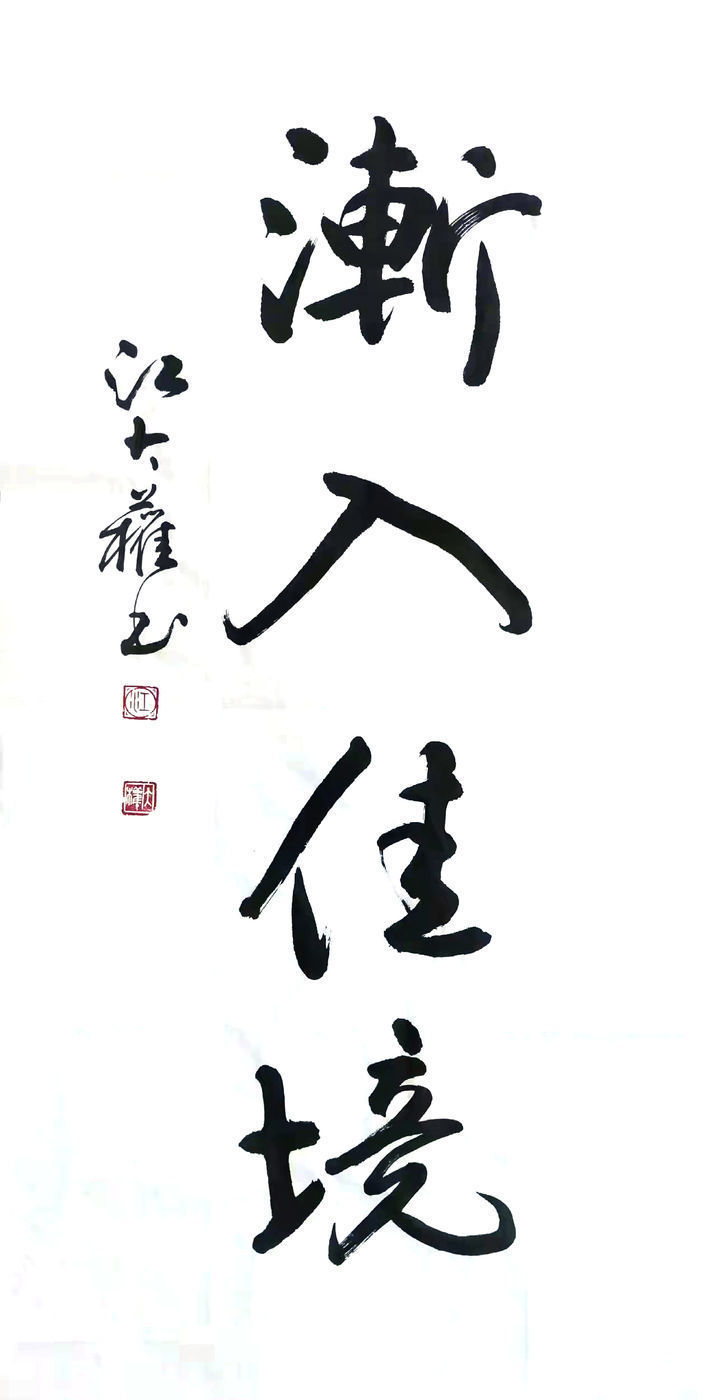 漸入佳境
江大權书
江
大權